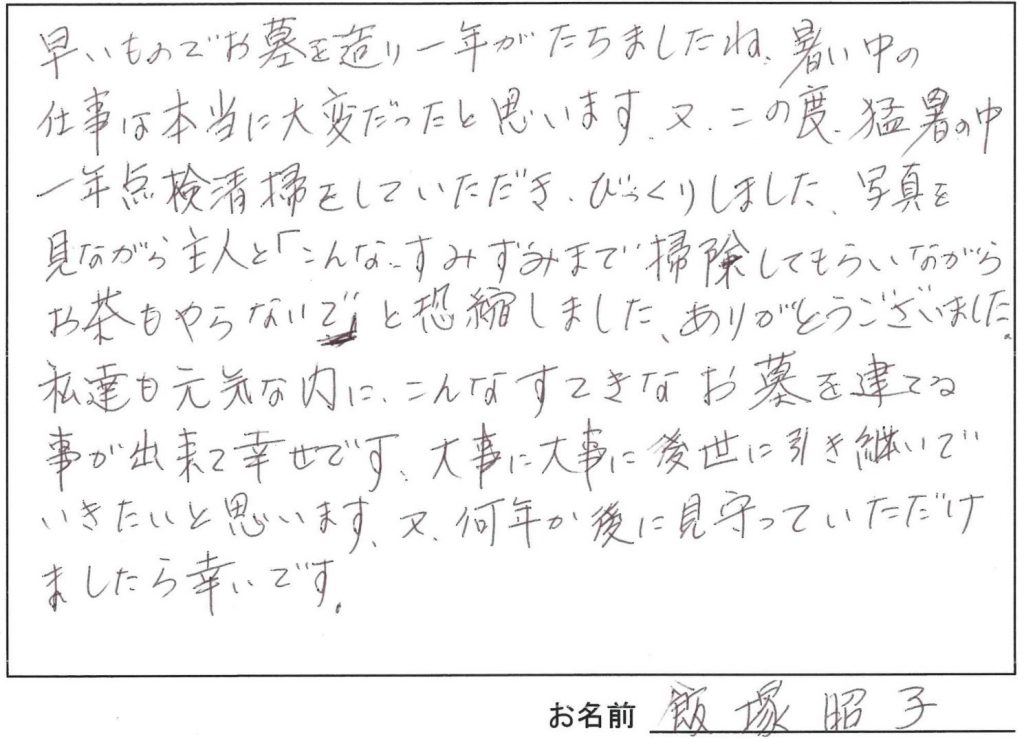 早いものでお墓を造り一年がたちましたね、暑い中の
仕事は本当に大変だったと思います、又、この度、猛暑の中
一年点検清掃をしていただき、びっくりしました、写真を
見ながら主人と「こんな、すみずみまで掃除してもらいながら
お茶もやらないで」と恐縮しました、ありがとうございました。
私達も元気な内に、こんなすてきなお墓を建てる
事が出来て幸せです、大事に大事に後世に引き継いで
いきたいと思います、又、何年か後に見守っていただけ
ましたら幸いです。
お名前 飯塚昭子